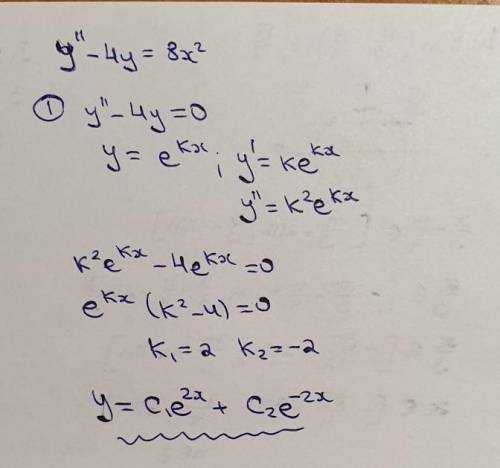 y'' - 4y = 8x²
① y'' - 4y = 0
y = e^{kx}; y' = ke^{kx}
y'' = k²e^{kx}
k²e^{kx} - 4e^{kx} = 0
e^{kx} (k² - 4) = 0
k₁ = 2 k₂ = -2
y = C₁e^{2x} + C₂e^{-2x}